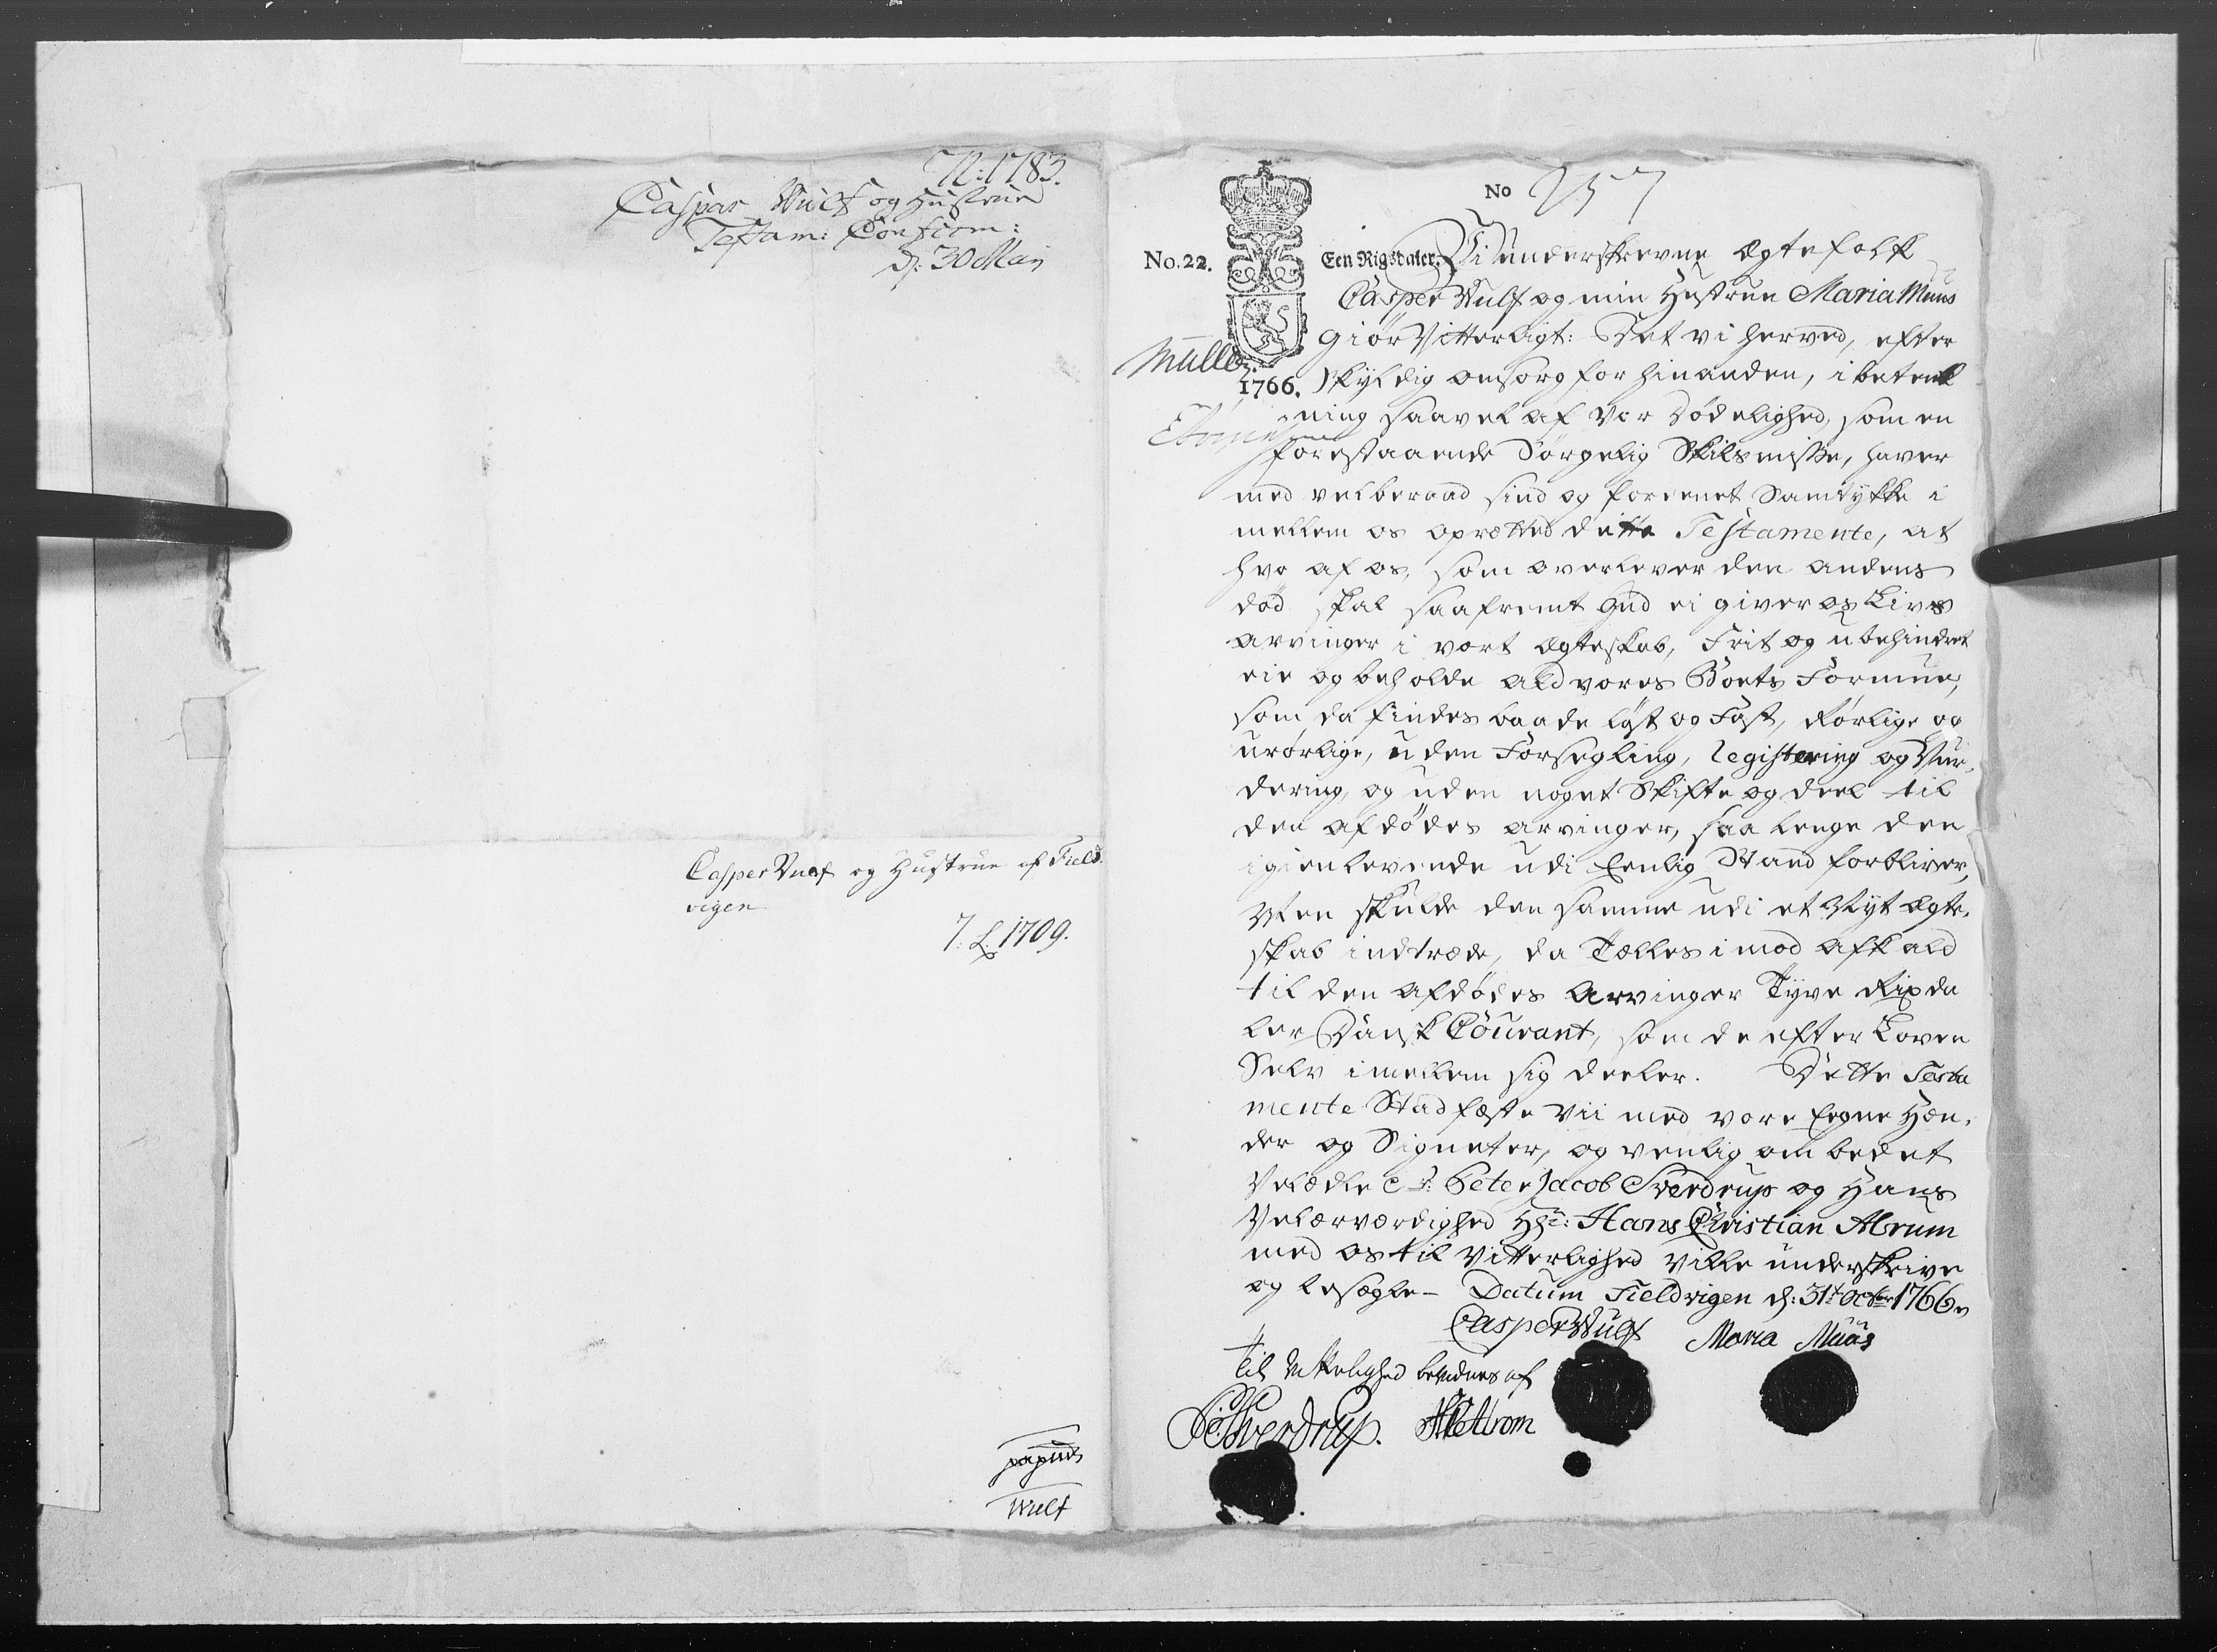 N: 1783.
Caspar Wulf og Hustrue
Testam: Confirm:
d: 30 Maj
Casper Wulf og Hustrue af Field-
vigen
7: L. 1709.
Wulf
No 257
No. 22. Een Rigsdaler. Vi underskrevne Ægtefolk
Casper Wulf og min Hustrue Maria Muus
Giør Vitterligt: Det vi herved, efter
Müller.
1766. skyldig omsorg for hinanden, i betenk
ning saavel af vor Dødelighed, som en
forestaaende Sørgelig Skilsmisse, haver
med velberaad sind og foreenet Samtykke i
mellem os oprætted dette Testamente, at
hvo af os, som overlever den andens
død skal saafremt Gud ei giver os Livs
arvinger i vort Ægteskab, Frit og ubehindret
eie og beholde ald vores Boets Formue,
som da findes baade løst og Fast, Rørlige og
urørlige, uden Forsegling, Registering og Vur-
dering, og uden noget Skifte og deel til
den afdødes arvinger, saa lenge den
igienlevende udi Eenlig Stand forbliver,
Men skulde den samme udi et Nyt Ægte-
skab indtræde, da Tælles imod afkald
til den afdødes Arvinger Tyve Rixda
ler Dansk Courant, som de efter Loven
Selv imellem sig deeler. Dette Testa
mente Stadfæste Vii med vore Egne Hæn-
der og Signeter, og venlig ombedet
Velædle Sr: Peter Jacob Sverdrup og Hans
Velærværdighed Hr: Hans Christian Abrum
med os til Vitterlighed ville underskrive
og besegle – Datum Fieldvigen d: 31t Octbr 1766
Casper Wulf Maria Muus
Til Vitterlighed bevidnes af
PJSverdrup. HCAbrom